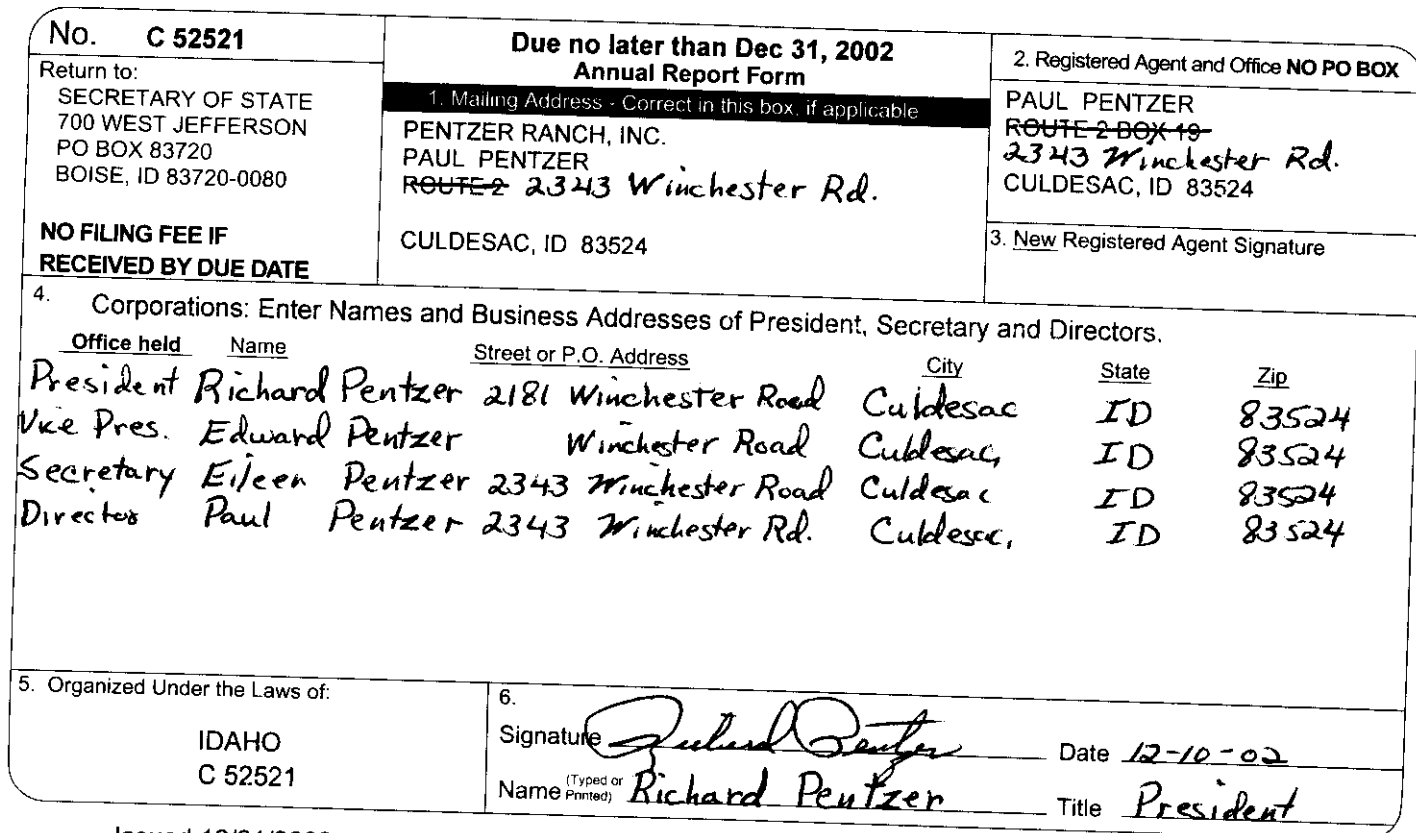 No. C 52521
Return to:
SECRETARY OF STATE
700 WEST JEFFERSON
PO BOX 83720
BOISE, ID 83720-0080
NO FILING FEE IF
RECEIVED BY DUE DATE
Due no later than Dec 31, 2002
Annual Report Form
1. Mailing Address - Correct in this box, if applicable
PENTZER RANCH, INC.
PAUL PENTZER
ROUTE 2 2343 Winchester Rd.
CULDESAC, ID 83524
2. Registered Agent and Office NO PO BOX
PAUL PENTZER
ROUTE 2 BOX 19
2343 Winchester Rd.
CULDESAC, ID 83524
3. New Registered Agent Signature
4. Corporations: Enter Names and Business Addresses of President, Secretary and Directors.
Office held Name Street or P.O. Address City State Zip
President Richard Pentzer 2181 Winchester Road Culdesac ID 83524
Vice Pres. Edward Pentzer Winchester Road Culdesac, ID 83524
Secretary Eileen Pentzer 2343 Winchester Road Culdesac ID 83524
Director Paul Pentzer 2343 Winchester Rd. Culdesac, ID 83524
5. Organized Under the Laws of:
IDAHO
C 52521
6.
Signature Richard Pentzer Date 12-10-02
Name (Typed or Printed) Richard Pentzer Title President